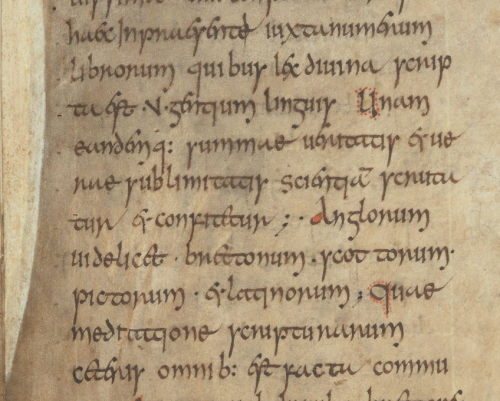 haec in praesenti iuxta numerum
librorum quibus lex diuina scrip
ta est · v · gentium linguis Unam
eandemq: summae ueritatis et ue
rae sublimitatis scientiā scruta
tur et confitetur ; · Anglorum
uidelicet · brettonum · scot torum ·
pictorum · et latinorum ; Quae
meditatione scripturarum
ceteris omnib: est facta commu